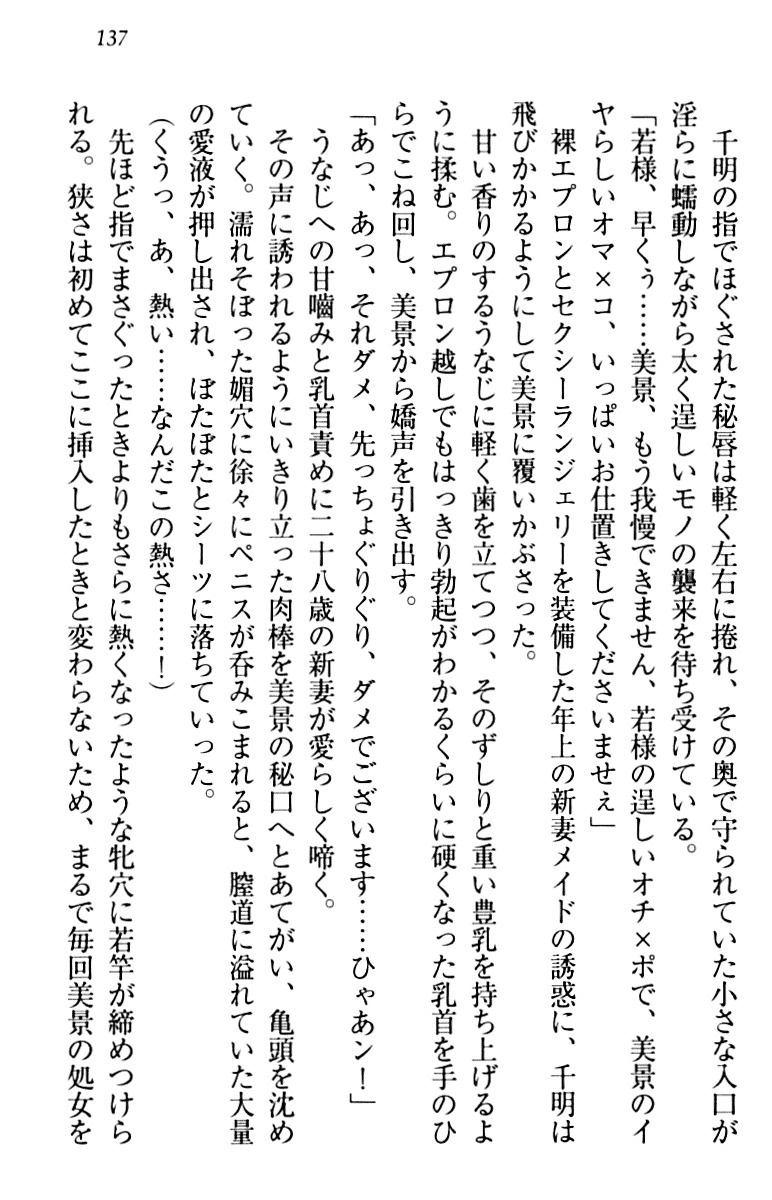 137
千明の指でほぐされた秘唇は軽く左右に捲れ、その奥で守られていた小さな入口が
淫らに蠕動しながら太く逞しいモノの襲来を待ち受けている。
「若様、早くぅ……美景、もう我慢できません、若様の逞しいオチ×ポで、美景のイ
ヤらしいオマ×コ、いっぱいお仕置きしてくださいませぇ」
裸エプロンとセクシーランジェリーを装備した年上の新妻メイドの誘惑に、千明は
飛びかかるようにして美景に覆いかぶさった。
甘い香りのするうなじに軽く歯を立てつつ、そのずしりと重い豊乳を持ち上げるよ
うに揉む。エプロン越しでもはっきり勃起がわかるくらいに硬くなった乳首を手のひ
らでこね回し、美景から嬌声を引き出す。
「あっ、あっ、それダメ、先っちょぐりぐり、ダメでございます……ひゃあン！」
うなじへの甘噛みと乳首責めに二十八歳の新妻が愛らしく啼く。
その声に誘われるようにいきり立った肉棒を美景の秘口へとあてがい、亀頭を沈め
ていく。濡れそぼった媚穴に徐々にペニスが呑みこまれると、膣道に溢れていた大量
の愛液が押し出され、ぼたぼたとシーツに落ちていった。
（くうっ、あ、熱い……なんだこの熱さ……！）
先ほど指でまさぐったときよりもさらに熱くなったような牝穴に若竿が締めつけら
れる。狭さは初めてここに挿入したときと変わらないため、まるで毎回美景の処女を